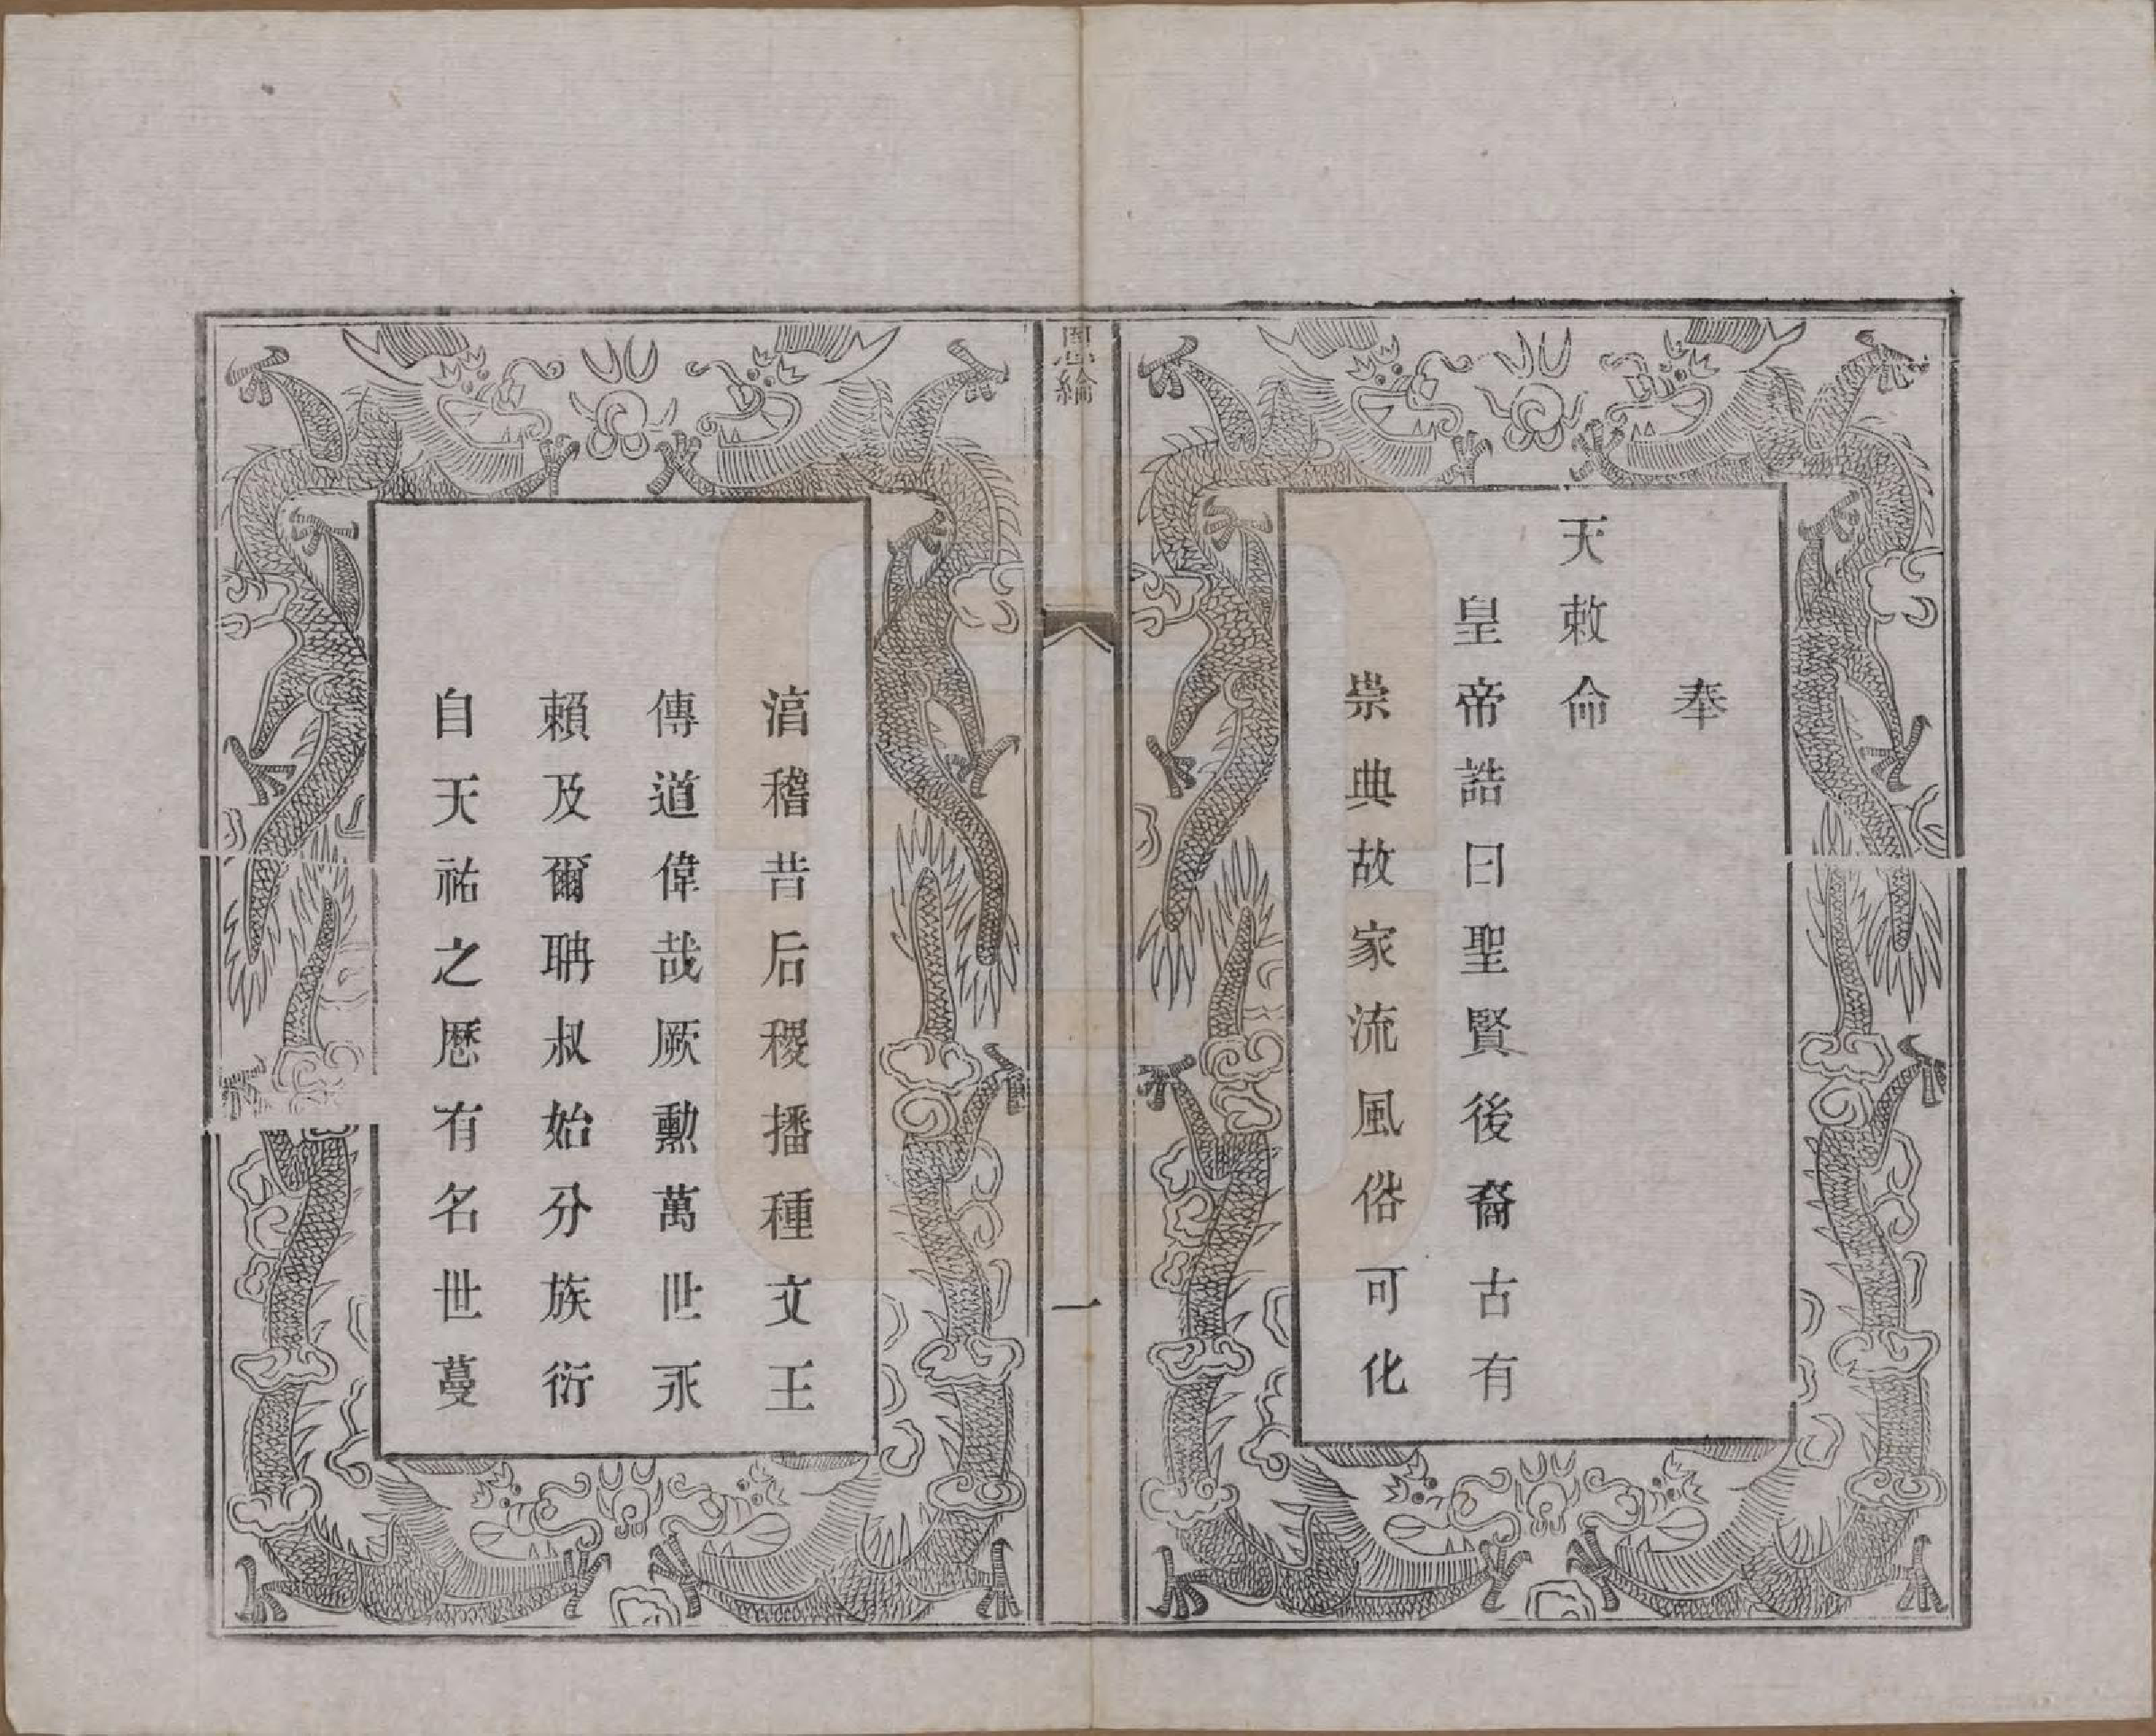 奉
天敕命
皇帝誥曰聖賢後裔古有
崇典故家流風俗可化
恩綸
一
滈稽昔后稷播種文王
傳道偉哉厥勲萬世永
賴及爾聃叔始分族衍
自天祐之歴有名世蔓